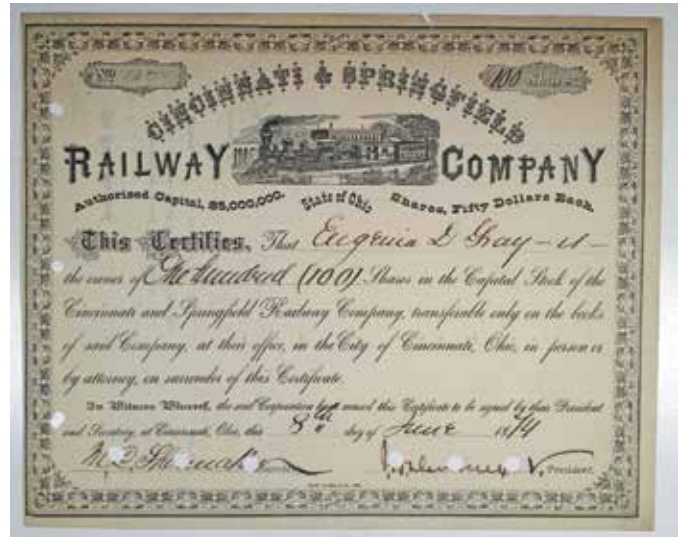 100
CINCINNATI & SPRINGFIELD
RAILWAY COMPANY
Authorized Capital, $5,000,000. State of Ohio Shares, Fifty Dollars Each.
This Certifies, That Eugenia D Gray - is -
the owner of One Hundred (100) Shares in the Capital Stock of the
Cincinnati and Springfield Railway Company, transferable only on the books
of said Company, at their office, in the City of Cincinnati, Ohio, in person or
by attorney, on surrender of this Certificate.
In Witness Whereof, the said Corporation has caused this Certificate to be signed by their President
and Secretary, at Cincinnati, Ohio, this 8th day of June 1874
President.